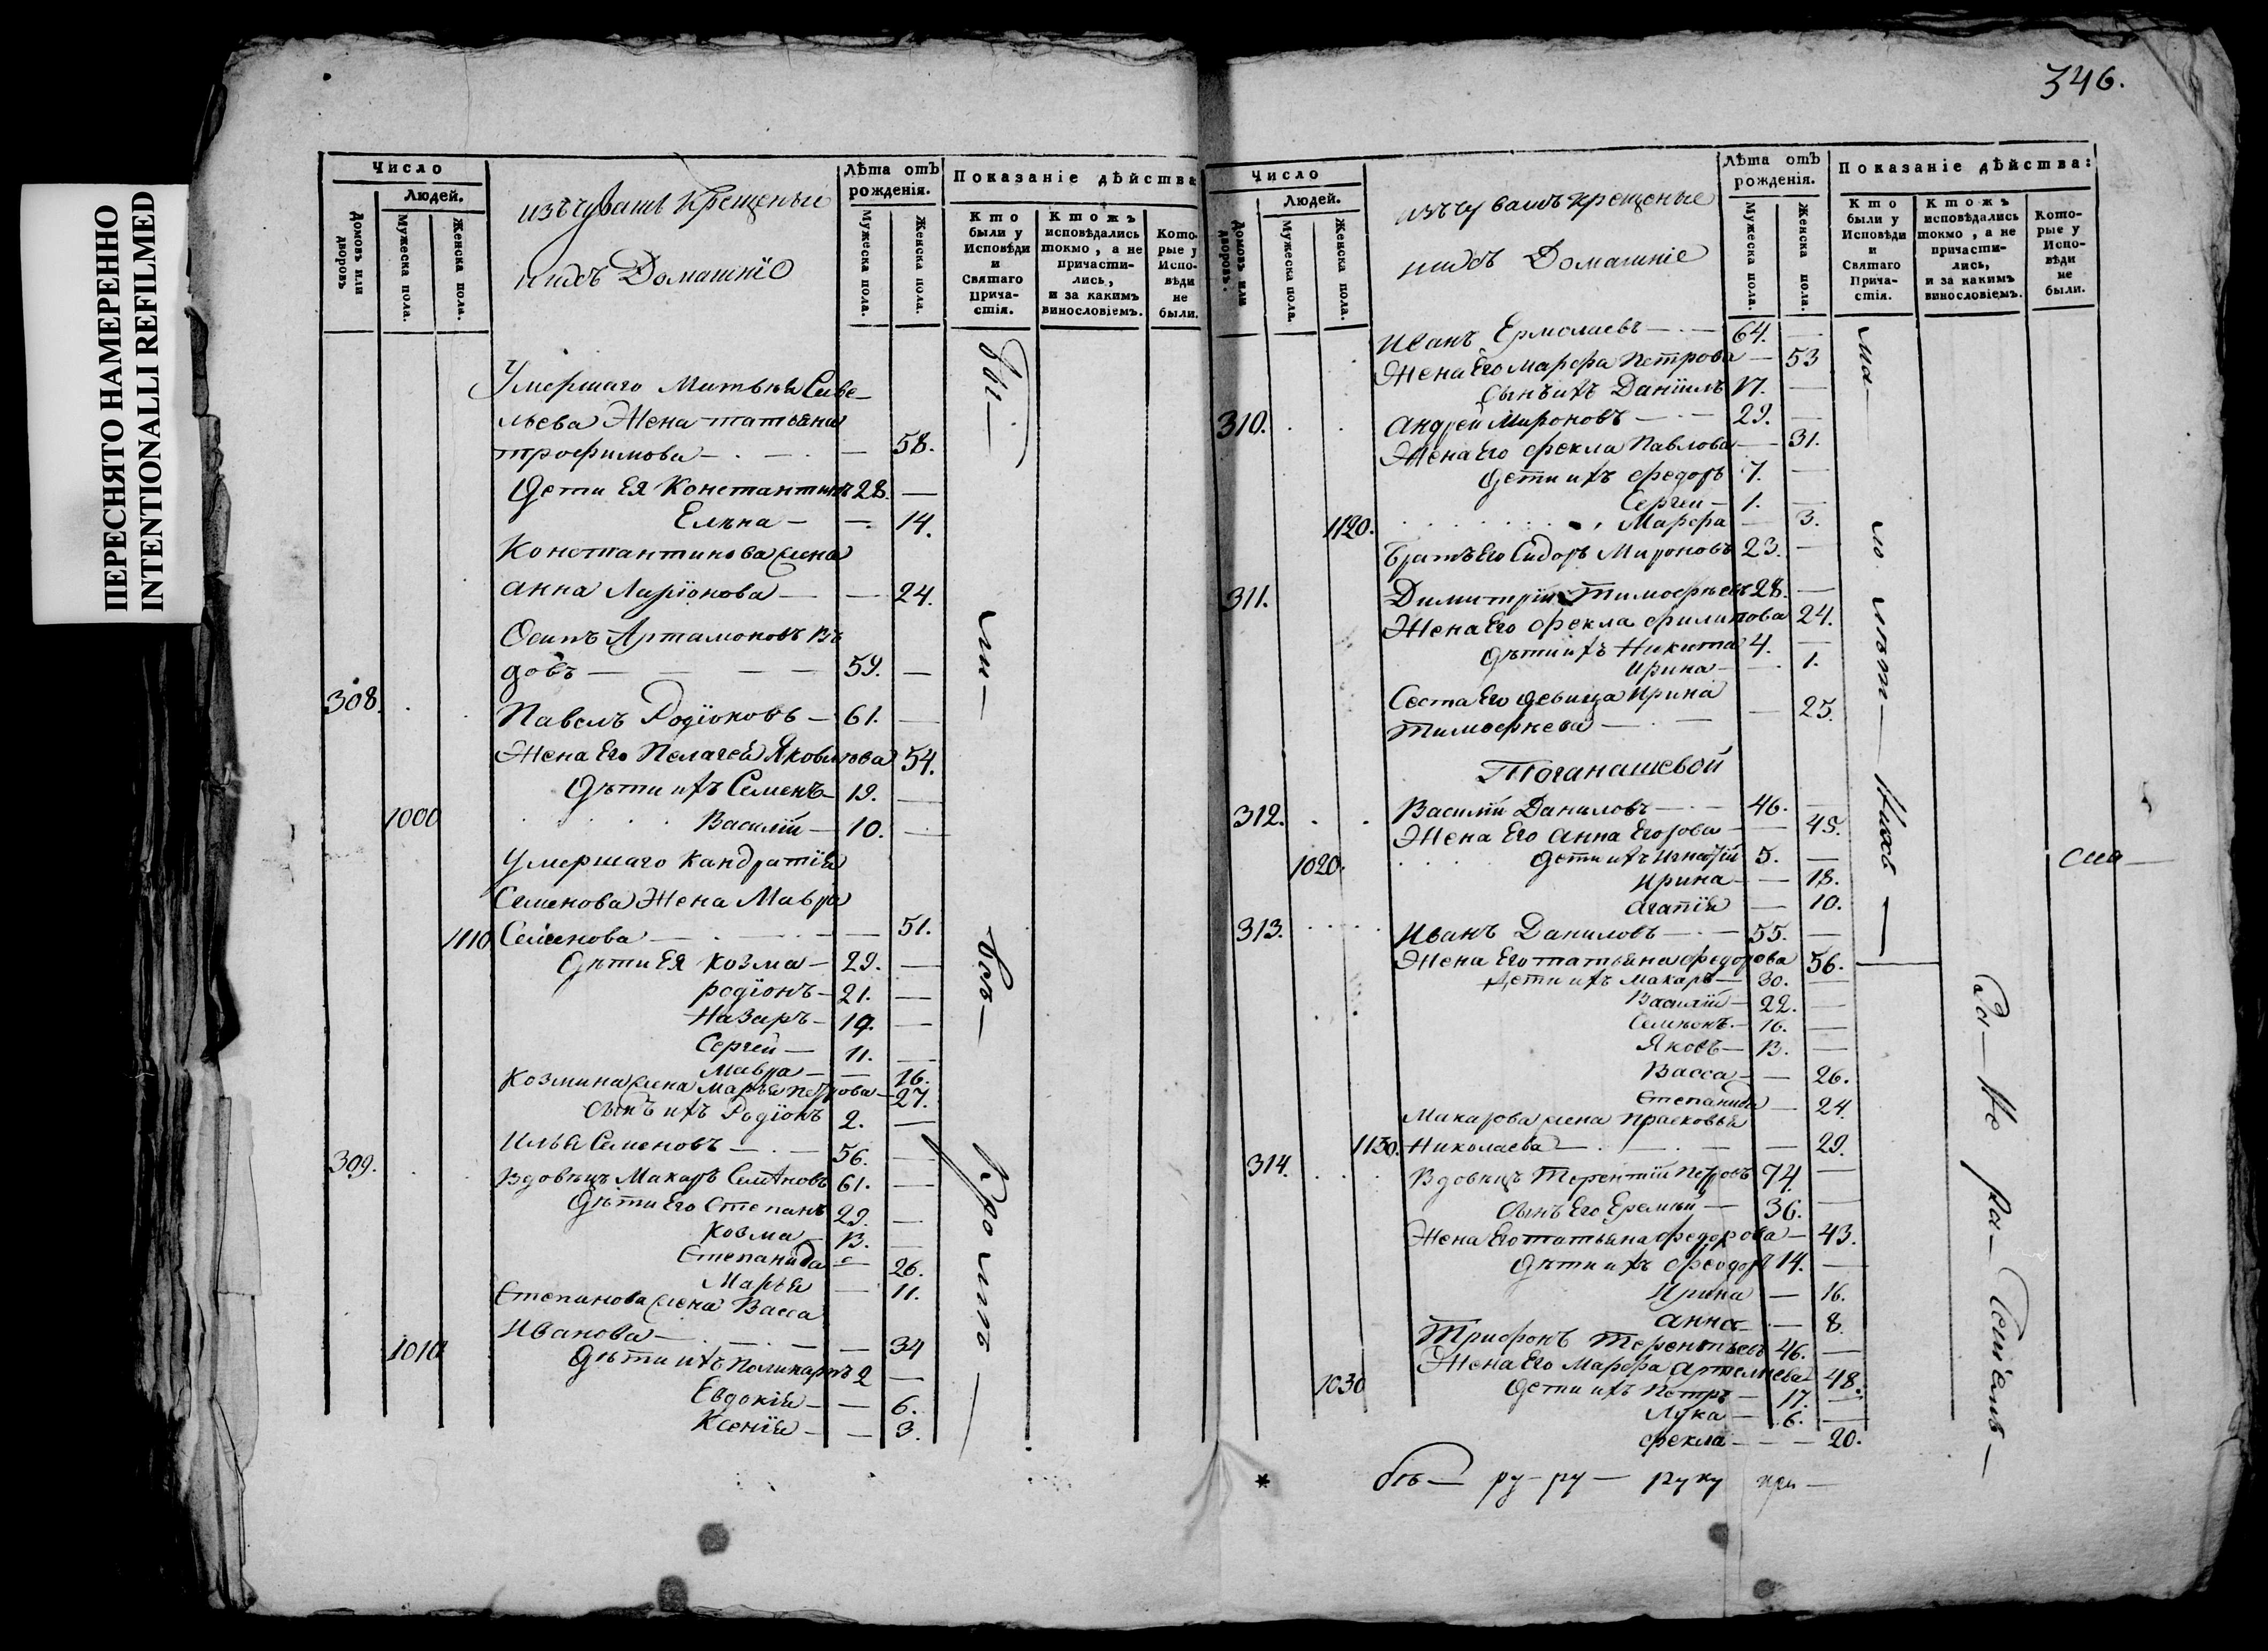 ПЕРЕСНЯТО НАМЕРЕННО
INTENTIONALLI REFILMED
346.
Число
Людей.
Домовъ или дворовъ
Мужеска пола.
Женска пола.
изъ чувашъ крещеныи
и ихъ Домашніе
Лѣта отъ рожденія.
Мужеска пола.
Женска пола.
Показаніе дѣйства
Кто были у Исповѣди и Святаго Прича-стія.
Ктожъ исповѣдались токмо, а не причасти-лись, и за какимъ винословіемъ.
Кото-рые у Испо-вѣди не были.
Умершаго Матвѣя Саве-
льева Жена татьяна
трофимова — — 58.
Дети Ея Константинъ 28. —
Елѣна — — 14.
Константинова жена
анна Ларіонова — — 24.
Осипъ Артамоновъ в
довъ — 59. —
308. Павелъ Родіоновъ — 61. —
Жена Его Пелагея Яковлева 54.
Дѣти ихъ Семенъ — 19. —
1000 Василіи — 10. —
Умершаго Кандратія
Семенова Жена Мавра
1110 Семенова — — 51.
Дѣти Ея Козма — 29. —
родіонъ — 21. —
Назаръ — 19. —
Сергеи — 11. —
Мавра — — 16.
Козмина жена Марья Петрова — 27.
Сынъ ихъ Родіонъ 2. —
Илья Семеновъ — 56. —
309. Вдовецъ Макаръ Семеновъ 61. —
Дѣти Его Степанъ 29. —
Козма 13. —
Степанида — 26.
Марья — 11.
Степанова жена Васса
Иванова — — 34
1010 Дѣти ихъ Поликарпъ 2 —
Евдокія — — 6.
Ксенія — — 3.
бы — ли — всѣ — кромѣ —
Число
Людей.
Домовъ или дворовъ.
Мужеска пола.
Женска пола.
изъ чувашъ крещеные
и ихъ Домашніе
Лѣта отъ рожденія.
Мужеска пола.
Женска пола.
Показаніе дѣйства:
Кто были у Исповѣди и Святаго Прича-стія.
Ктожъ исповѣдались токмо, а не причасти-лись, и за какимъ винословіемъ.
Кото-рые у Испо-вѣди не были.
Иванъ Ермолаевъ — 64. —
Жена Его марфа Петрова — 53
Сынъ ихъ Даніилъ 17. —
310. Андреи Мироновъ — 29. —
Жена Его фекла Павлова — 31.
Дети ихъ федоръ 7. —
Сергеи — 1. —
1120. Марфа — 3.
Братъ Его Сидоръ Мироновъ 23. —
311. Димитріи Тимофѣевъ 28. —
Жена Его фекла филипова 24.
Дѣти ихъ Никита 4. —
Ирина — 1.
Сестра Его девица Ирина
Тимофѣева — — 25.
Тоганашевой
312. Василіи Даниловъ — 46. —
Жена Его Анна Егорова — — 45.
1020. Дети ихъ Игнатіи 5. —
Ирина — — 18.
агапія — 10.
313. Иванъ Даниловъ — 55. —
Жена Его татьяна федорова 56.
Дети ихъ Макаръ — 30. —
Василіи — 22. —
Семенъ — 16. —
Яковъ — 13. —
Васса — — 26.
Степанида — 24.
Макарова жена Прасковья
1130. Николаева — — 29.
314. Вдовецъ Терентіи Петровъ 74. —
Сынъ Его Еремѣи — 36. —
Жена Его татьяна федорова — 43.
Дѣти ихъ феодоръ 14. —
Ирина — 16.
анна — — 8.
Трифонъ Терентьевъ 46. —
Жена Его Марфа Артемьева 48.
1030 Дети ихъ Петръ — 17. —
Лука — 6. —
фекла — — 20.
ма — лолѣт — нихъ —
За — Не ра —
бъ — ру — ру — руку при —